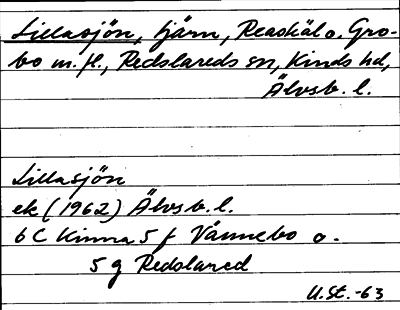 Lillasjön, tjärn, Reaskäl o. Gro-
bo m. fl., Redslareds sn, Kinds hd,
Älvsb. l.
Lillasjön
ek (1962) Älvsb. l.
6 C Kinna 5 f Vännebo o.
5 g Redslared
U. St. -63